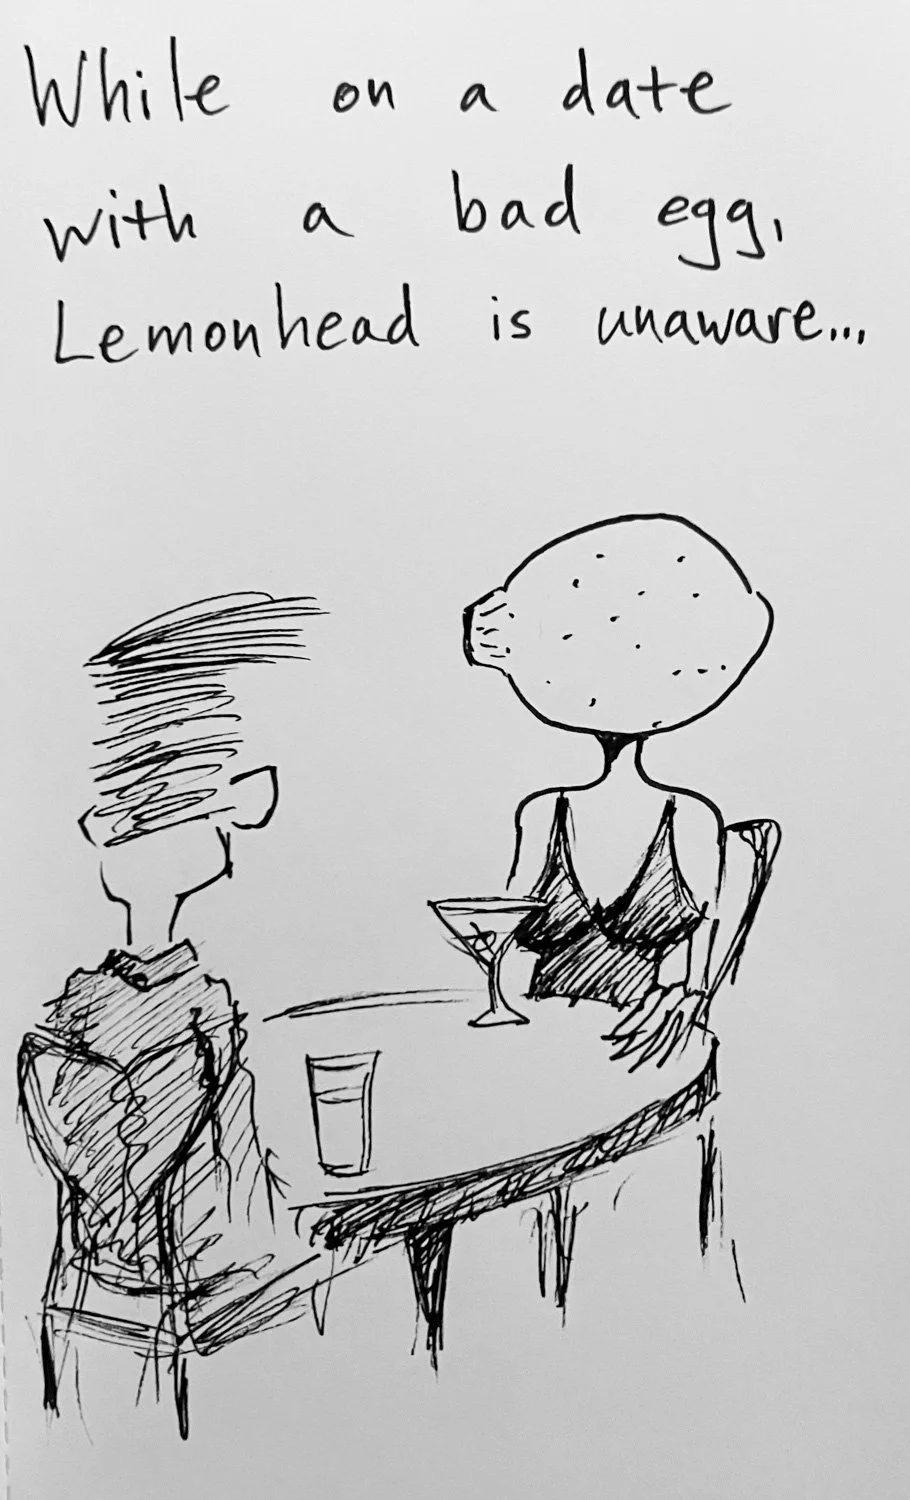 While on a date
with a bad egg,
Lemonhead is unaware...